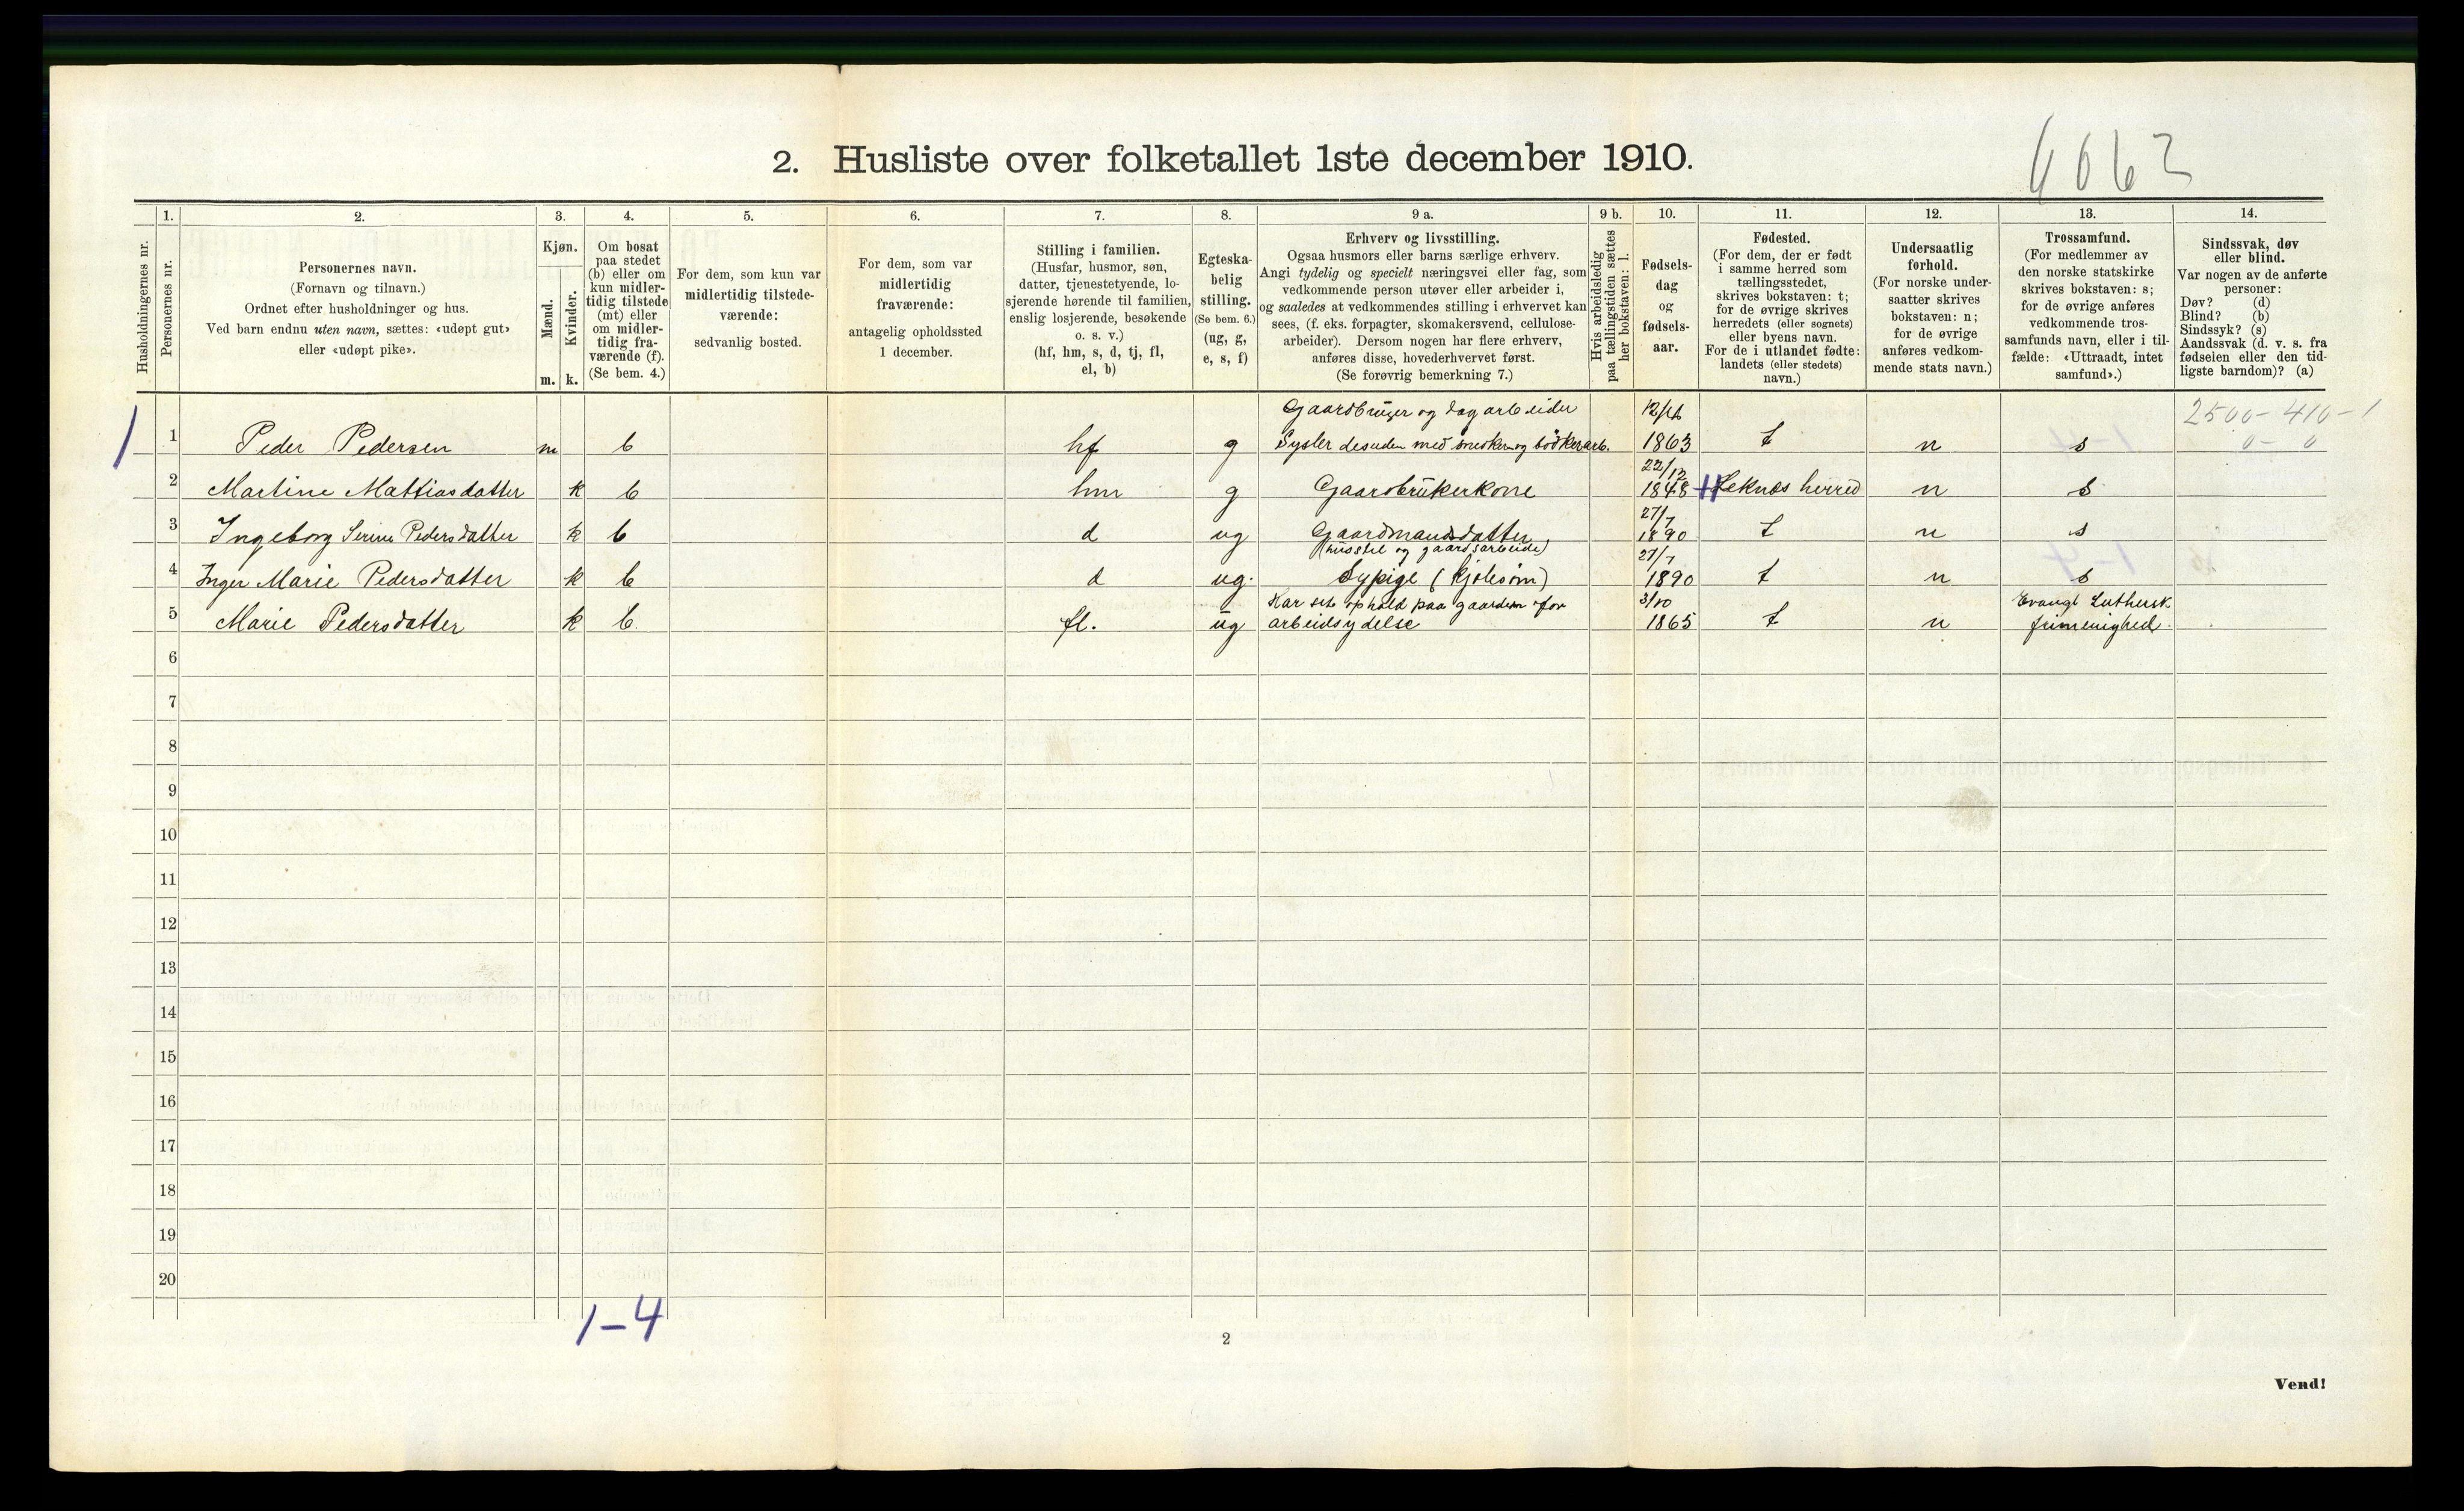 2. Husliste over folketallet 1ste december 1910.
6063
Husholdningernes nr.
1.
Personernes nr.
2.
Personernes navn.
(Fornavn og tilnavn.)
Ordnet efter husholdninger og hus.
Ved barn endnu uten navn, sættes: «udøpt gut»
eller «udøpt pike».
3.
Kjøn.
Mænd.
Kvinder.
m. k.
4.
Om bosat
paa stedet
(b) eller om
kun midler-
tidig tilstede
(mt) eller
om midler-
tidig fra-
værende (f).
(Se bem. 4.)
5.
For dem, som kun var
midlertidig tilstede-
værende:
sedvanlig bosted.
6.
For dem, som var
midlertidig
fraværende:
antagelig opholdssted
1 december.
7.
Stilling i familien.
(Husfar, husmor, søn,
datter, tjenestetyende, lo-
sjerende hørende til familien,
enslig losjerende, besøkende
o. s. v.)
(hf, hm, s, d, tj, fl,
el, b)
8.
Egteska-
belig
stilling.
(Se bem. 6.)
(ug, g,
e, s, f)
9 a.
Erhverv og livsstilling.
Ogsaa husmors eller barns særlige erhverv.
Angi tydelig og specielt næringsvei eller fag, som
vedkommende person utøver eller arbeider i,
og saaledes at vedkommendes stilling i erhvervet kan
sees, (f. eks. forpagter, skomakersvend, cellulose-
arbeider). Dersom nogen har flere erhverv,
anføres disse, hovederhvervet først.
(Se forøvrig bemerkning 7.)
9 b.
Hvis arbeidsledig
paa tællingstiden sættes
her bokstaven: l.
10.
Fødsels-
dag
og
fødsels-
aar.
11.
Fødested.
(For dem, der er født
i samme herred som
tællingsstedet,
skrives bokstaven: t;
for de øvrige skrives
herredets (eller sognets)
eller byens navn.
For de i utlandet fødte:
landets (eller stedets)
navn.)
12.
Undersaatlig
forhold.
(For norske under-
saatter skrives
bokstaven: n;
for de øvrige
anføres vedkom-
mende stats navn.)
13.
Trossamfund.
(For medlemmer av
den norske statskirke
skrives bokstaven: s;
for de øvrige anføres
vedkommende tros-
samfunds navn, eller i til-
fælde: «Uttraadt, intet
samfund».)
14.
Sindssvak, døv
eller blind.
Var nogen av de anførte
personer:
Døv? (d)
Blind? (b)
Sindssyk? (s)
Aandssvak (d. v. s. fra
fødselen eller den tid-
ligste barndom)? (a)
Gaardbruger og dagarbeider 12/12 2500-410-1
1 1 Peder Pedersen m b hf g Sysler desuden med snedker og bødkerarb. 1863 t n s 0- 0
22/12
2 Martine Mattiasdatter k b hm g Gaardbrukerkone 1848 Veknæs herred n s
27/7
3 Ingeborg Serine Pedersdatter k b d ug Gaardmandsdatter 1890 t n s
(husstel og gaardsarbeide) 27/7
4 Inger Marie Pedersdatter k b d ug. Sypige (kjolesøm) 1890 t n s
Har sit ophold paa gaarden for 3/10 Evangl Luthersk
5 Marie Pedersdatter k b. fl. ug arbeidsydelse 1865 t n frimenighed.
6
7
8
9
10
11
12
13
14
15
16
17
18
19
20
1-4
2
Vend!